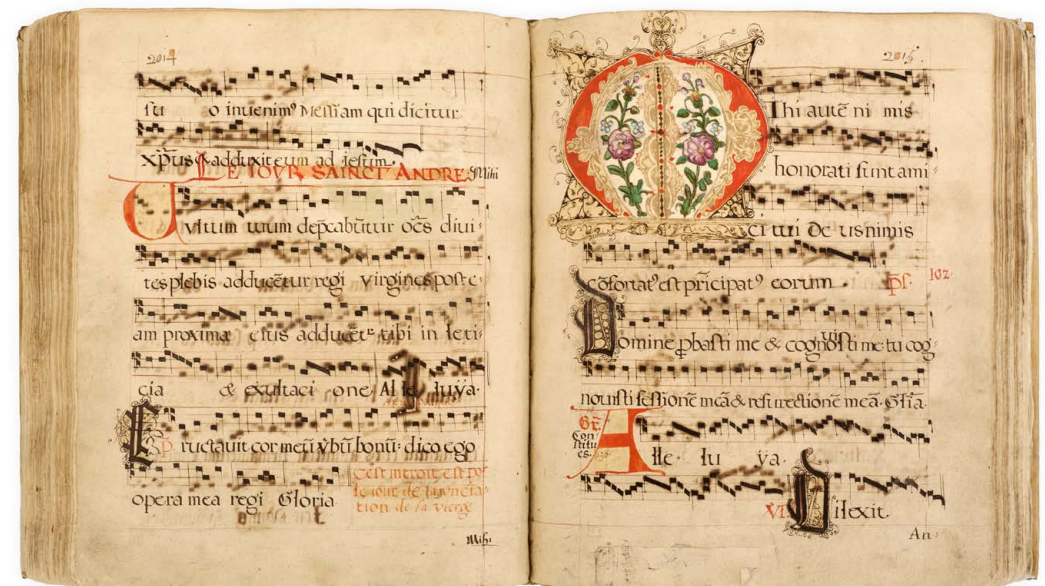 2014
tu o inuenimꝰ Messiam qui dicitur
xp̄us & adduxit eum ad iesum
LE IOVR SAINCT ANDRE. Mihi
Vultum tuum dep̄cabūtur oēs diui-
tes plebis adducētur regi virgines poste-
am proximæ eius adducēt tibi in leti-
cia & exultaci one Alle luya.
Eructauit cor meū v̄bū bonū: dico ego
opera mea regi Gloria
Cest introit est po
le iour de lanuncia
tion de la vierge
Mihi
2015
MIhi autē ni mis
honorati sunt ami
ci tui De us nimis
cōfortatꝰ est prīcipatꝰ eorum. ps. 102.
Domine ꝓbasti me & cognouisti me: tu cog-
nouisti sessionē meā & resurrectionē meā. Gl̄ia.
Gr̄. Con stitu es.
Alle lu ya.
VI Dilexit.
An